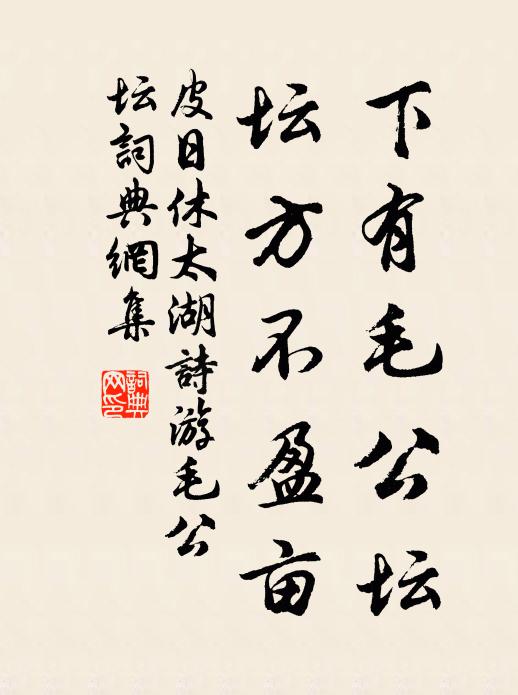 下有毛公坛
坛方不盈亩
皮日休太湖詩游毛公
坛詞典網集
詞典
网印